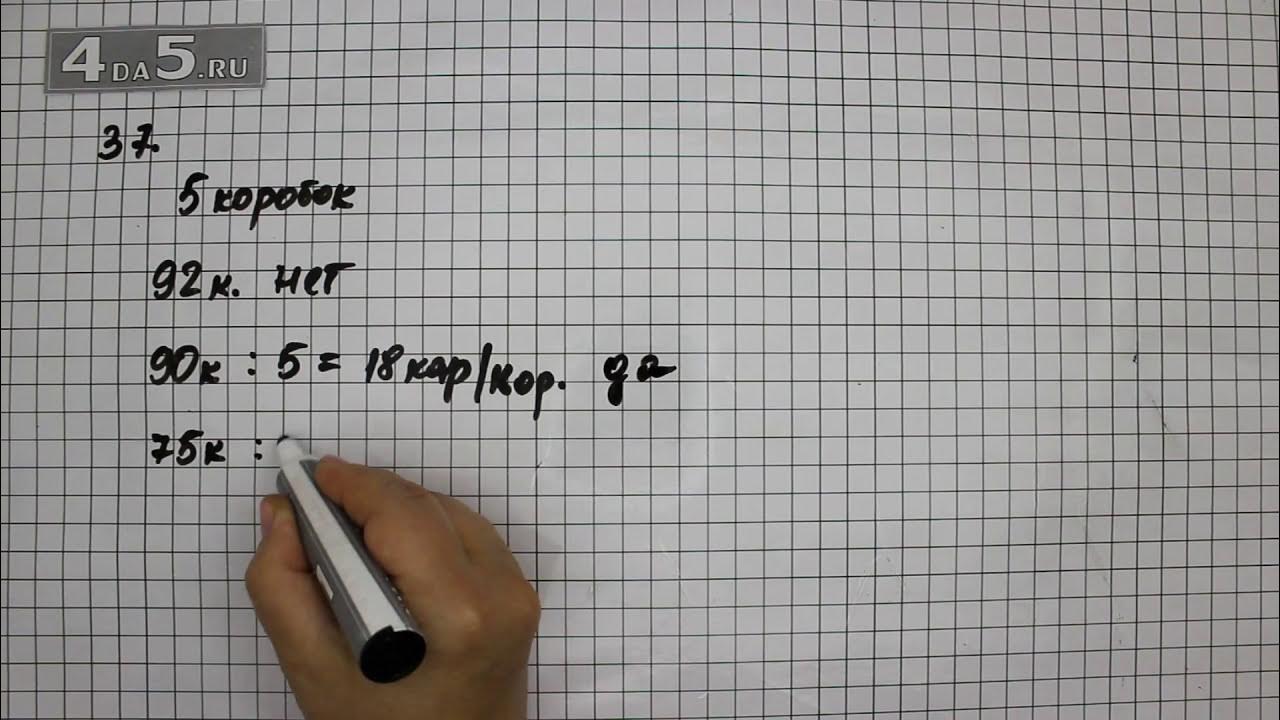 4DA5.RU
37.
5 коробок
92 к. нет
90к : 5 = 18 кар/кор. да
75к :